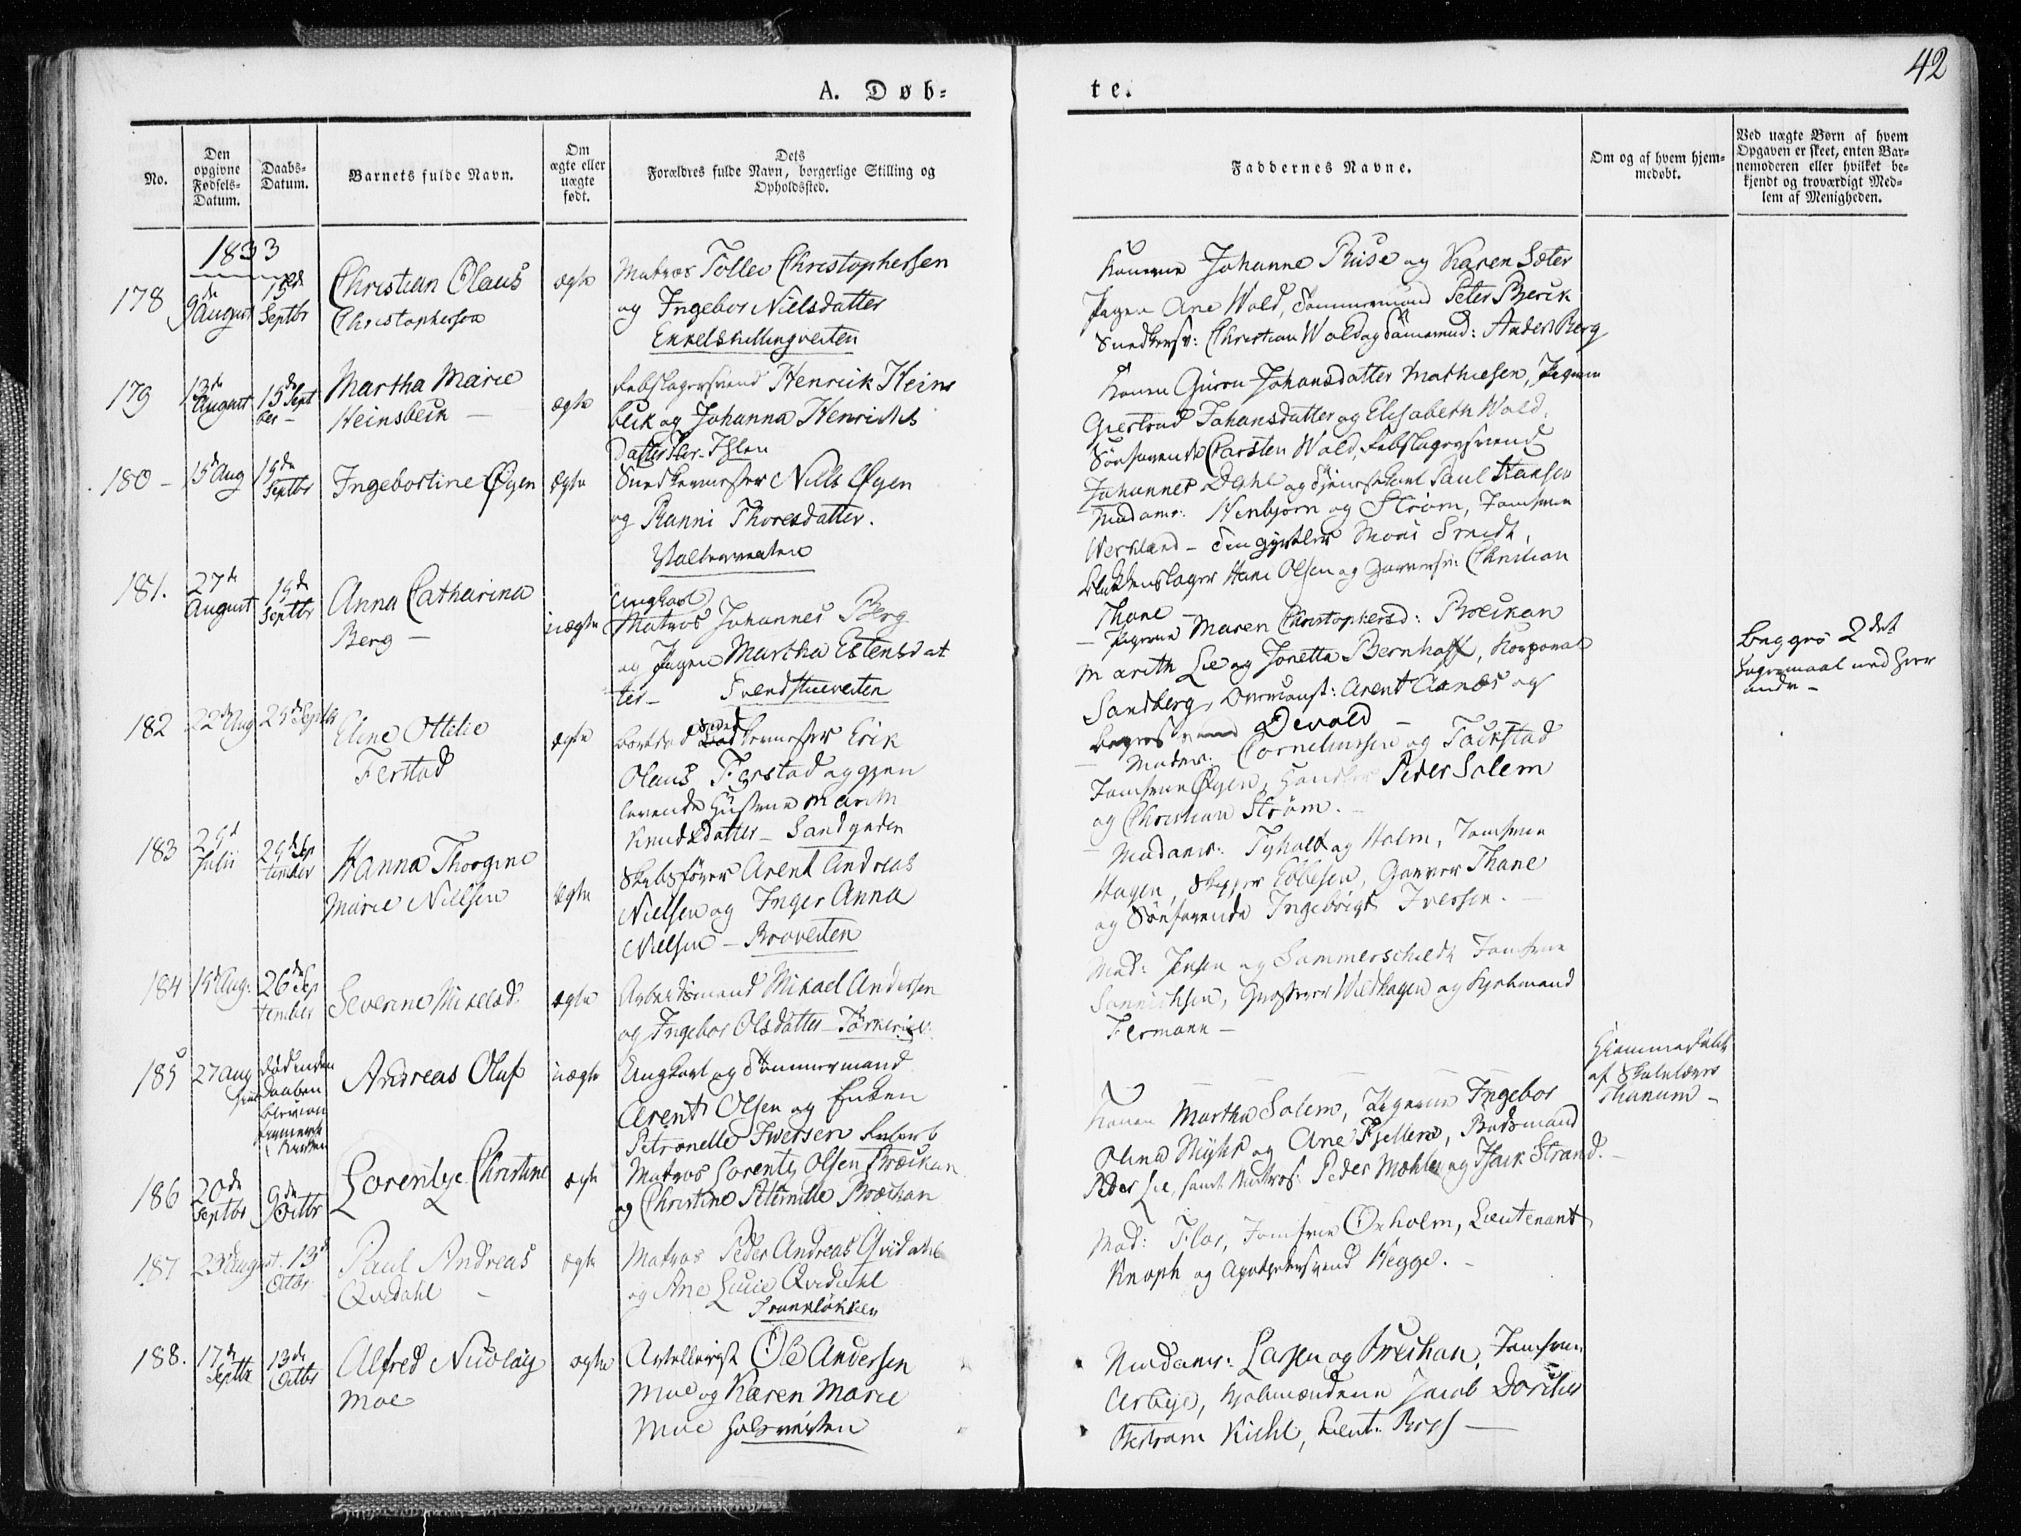 42
A. Døb=
te.
No.
Den opgivne Fødsels-Datum.
Daabs-Datum.
Barnets fulde Navn.
Om ægte eller uægte født.
Dets Forældres fulde Navn, borgerlige Stilling og Opholdssted.
Faddernes Navne.
Om og af hvem hjemmedøbt.
Ved uægte Børn af hvem Opgaven er skeet, enten Barnemoderen eller hvilket bekjendt og troværdigt Medlem af Menigheden.
1833
178
9de August
15de Septbr
Christian Olaus
Christophersen
ægte
Matros Tollev Christophersen
og Ingebor Nielsdatter
Enkelskillingveiten
Konerne Johanne Ruse og Karen Sæter
Pigen Ane Wold, Tømmermand Peter Bierik
Snedkersv: Christian Wold og Tømermd: Anders Berg
179
13de August
15de Septber
Martha Marie
Heinsbeik
ægte
Rebslagersvend Henrik Heins
beik og Johanna Henrichs
Datter Ihlen
Konen Guron Johansdatter Mathiesen, Pigerne
Giertrud Johansdatter og Elisabeth Wold,
Søefarende Carsten Wold, Rebslagersvend
Johannes Dahl og Paul Hansen
180
15d Aug
15de Septbr
Ingeborgtine Øyen
Ægte
Snedkermester Niels Øyen
og Ranni Thoresdatter.
Madamr: Henbjørn og Strøm, Jomfrue
Werkland - Smidt,
Hans Olsen og Christian
Thane
181.
27de August
15de Septbr
Anna Catharina
Berg
uægte
Ungkarl
Matros Johannes Berg
og Pigen Martha Estensdat
ter - Svendstueveiten
Pigerne Maren Christophersd: Brækan
Marith Lie og Jonetta Bernhoff, Korporal
Sandberg, Arent Aanes og
Devold
Begges 2det
Leiermaal med hver
andre
182
22d Aug
29d Septbr
Eline Ottilie
Ferstad
ægte
Snedkermester Erik
Olaus Ferstad og gjen
levende Hustrue Marith
Knudsdatter - Sandgaden
Madmr. Corneliussen og Fairstad
Jomfrue Øyen, Peder Solem
og Christian Strøm.
183
29d Julii
29de September
Hanna Thorgine
Marie Nielsen
Ægte
Skibsfører Arent Andreas
Nielsen og Inger Anna
Nielsen - Braveiten
Madamr. Tyholt og Holm, Jomfrue
Hagen, Skipper Ebbesen, Garver Thane
og Søefarende Ingebrigt Iversen.
184
19d Aug.
26de September
Severine Mikelsd:
ægte
Arbeidsmand Mikael Andersen
og Ingebor Olsdatter
Mad: Jensen og Sommerschildt Jomfrue
Sannichsen, Widhagen og Kjøbmand
Fermann
185
27 Aug
død inden
Daaben
blev
Kirken
Andreas Oluf
uægte
Ungkarl og Tømmermand
Arent Olsen og Enken
Petronelle Iversen
Konen Martha Solem, Pigerne Ingebor
Olina Myhr og Ane Kjellen, Baadsmand
Peder Lie, samt Matros: Peder Mæhle og Isack Strand.
Hjemmedøbt
af Skolelærer
Thanum
186
20de Septbr
9de Octbr
Lorentye Christine
ægte
Matros Lorentz Olsen Brækan
og Christine Peternille Brækan
Mad: Flor, Jomfrue Oxholm, Lieutenant
Knoph og Apothekersvend Hegge.
187
23d August.
13d Octbr.
Paul Andreas
Qvidahl
ægte
Matros Peder Andreas Qvidahl
og Ane Lucie Qvidahl
188.
17de Septbr
13de Octbr
Alfred Nicolay
Moe
ægte
Ole Andersen
Moe og Karen Marie
Moe
Madamr: Larsen og Breihan, Jomfrue
Kjøbmændene Jacob
Bertram Kiehl, Lieut: